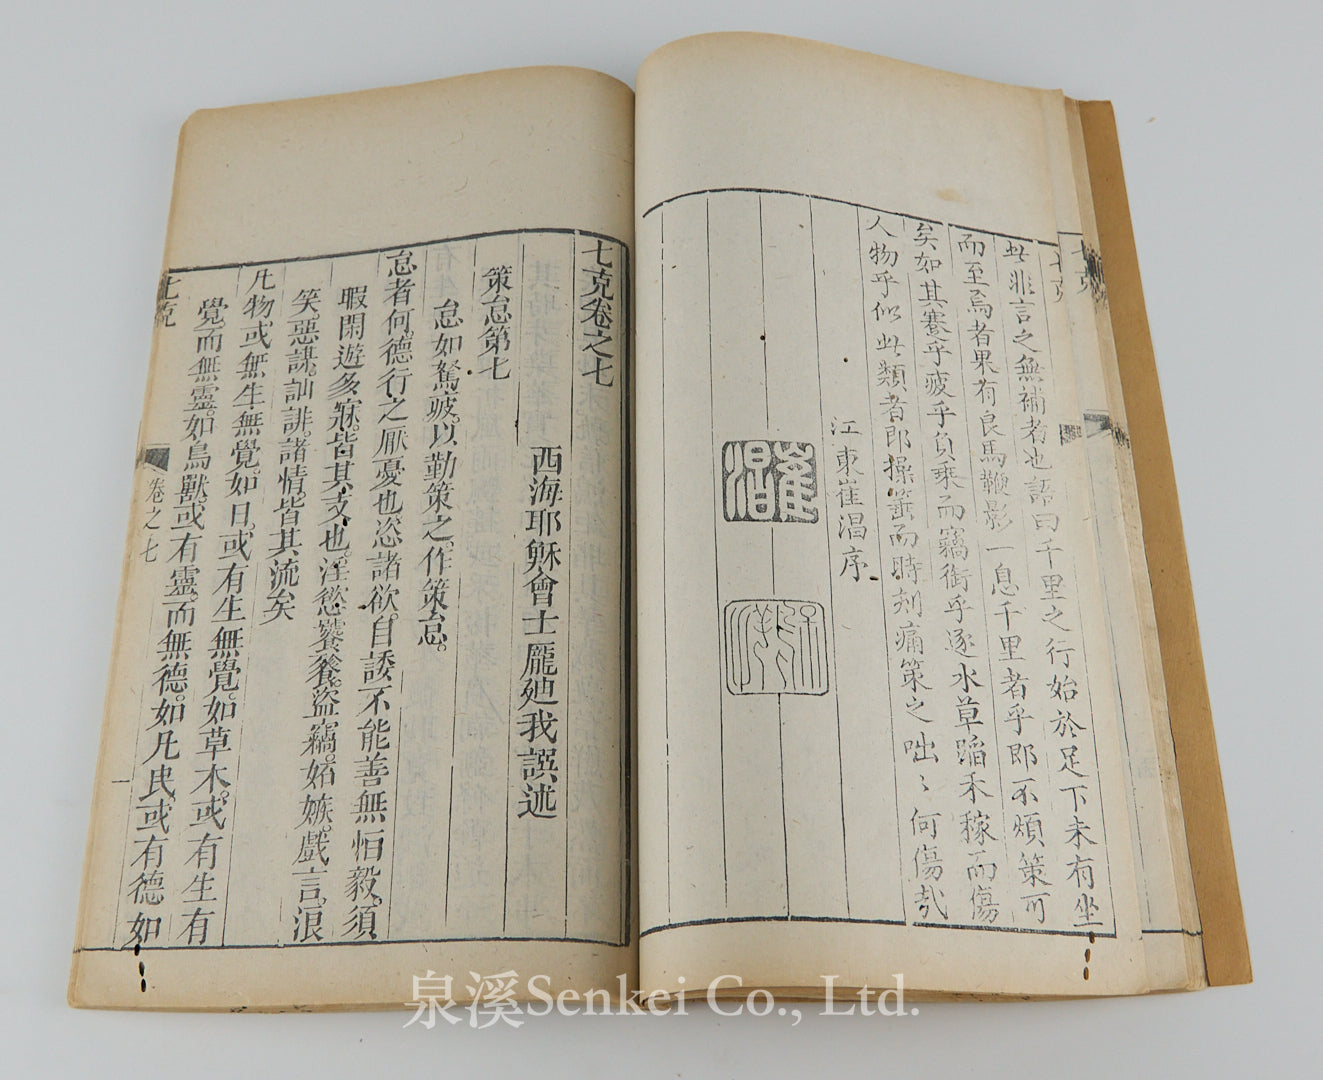 七克
此非言之無補者也語曰千里之行始於足下未有坐
而至焉者果有良馬鞭影一息千里者乎即不煩策可
矣如其蹇乎疲乎負乘而竊銜乎逐水草蹈禾稼而傷
人物乎似此類者即操箠而時刻痛策之咄咄何傷哉
江東崔淐序
崔淐
七克卷之七
西海耶穌會士龐迪我譔述
策怠第七
怠如駑疲。以勤策之。作策怠。
怠者何。德行之厭憂也恣諸欲。自諉不能善無恒毅。須
暇閑遊多寐。皆其支也。淫慾饕餮。盜竊。妬嫉。戲言。浪
笑。惡謀。訕誹。諸情。皆其流矣
凡物或無生無覺。如日。或有生無覺。如草木。或有生有
覺。而無靈。如鳥獸。或有靈。而無德。如凡民。或有德。如
七克
卷之七
一
泉溪Senkei Co., Ltd.